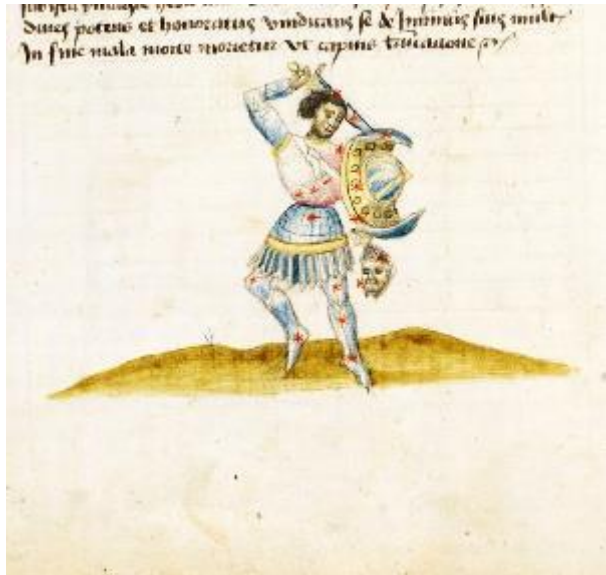 Diues potens et honoratus vindicans se de Inimicis suis mult
In fine mala morte morietur vt capitis truncatione